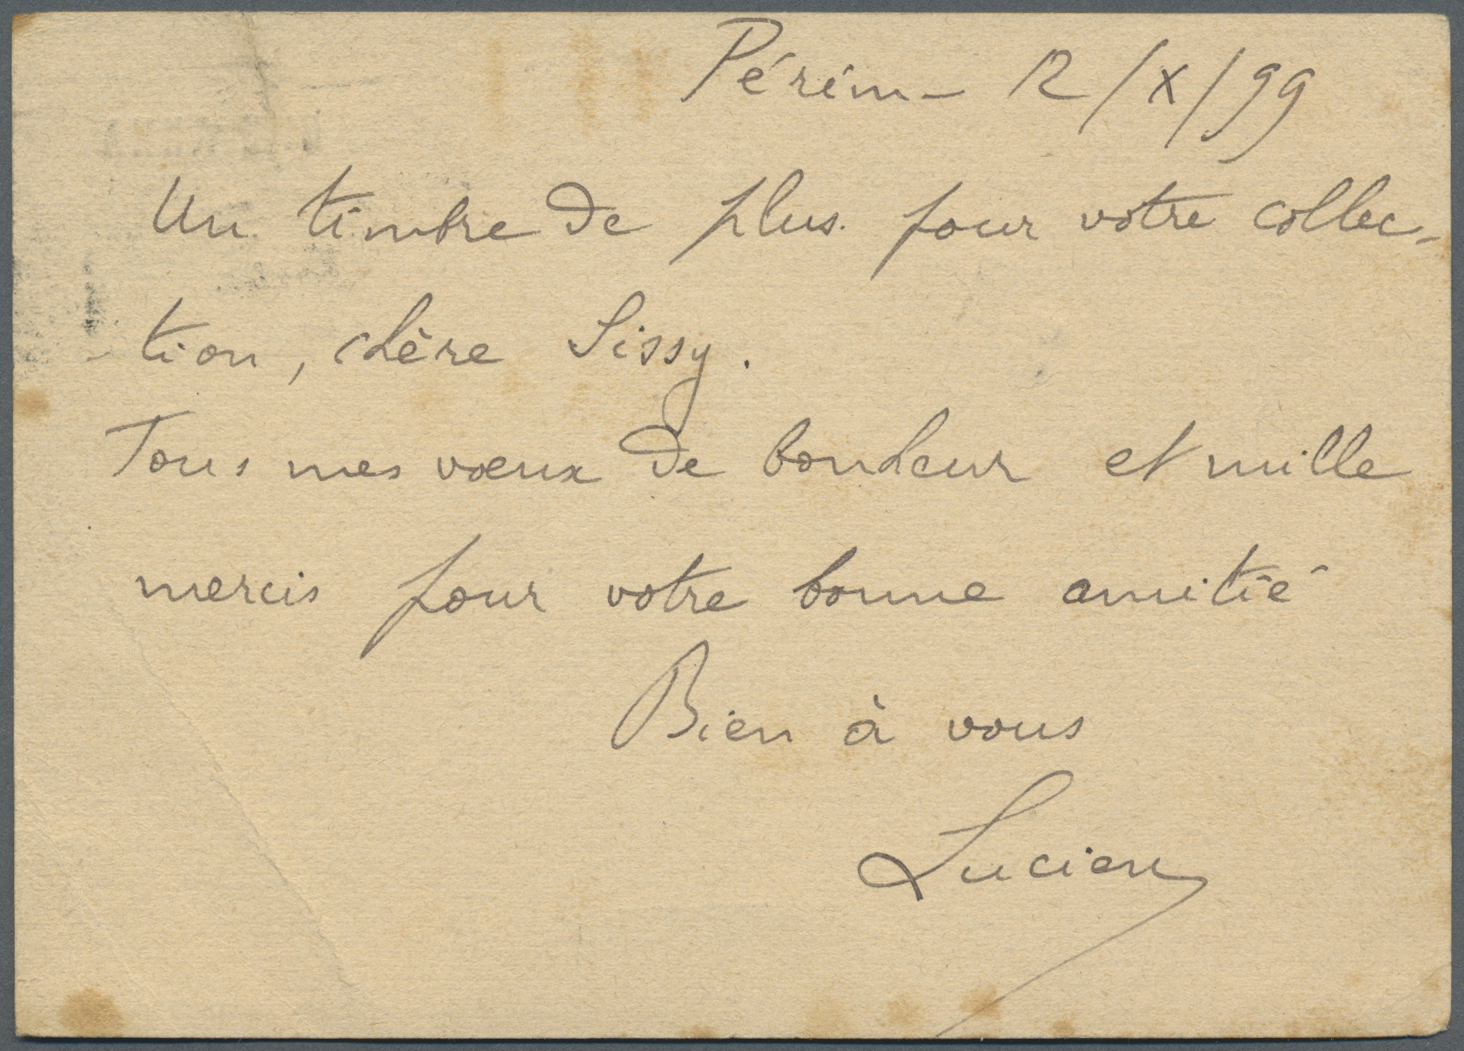 Périm - 12/X/99
Un timbre de plus pour votre collec-
- tion, chère Sissy.
Tous mes vœux de bonheur et mille
mercis pour votre bonne amitié
Bien à vous
Lucien